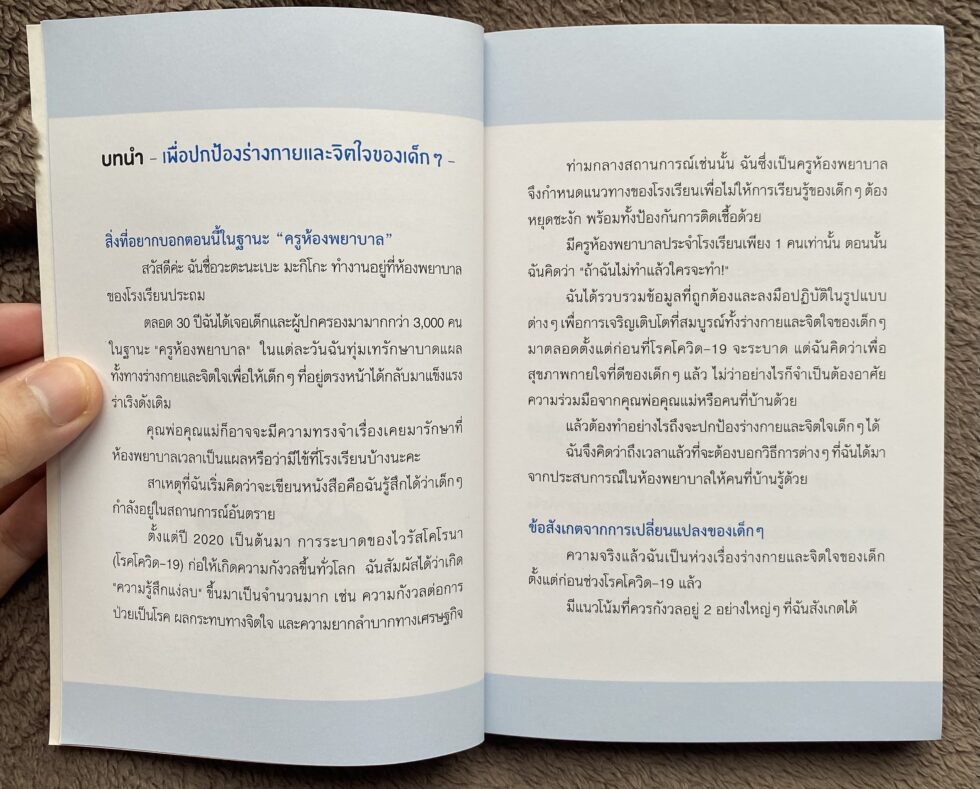 บทนำ – เพื่อปกป้องร่างกายและจิตใจของเด็กๆ –
สิ่งที่อยากบอกตอนนี้ในฐานะ “ครูห้องพยาบาล”
สวัสดีค่ะ ฉันชื่อวะตะนะเบะ มะกิโกะ ทำงานอยู่ที่ห้องพยาบาล
ของโรงเรียนประถม
ตลอด 30 ปีฉันได้เจอเด็กและผู้ปกครองมามากกว่า 3,000 คน
ในฐานะ "ครูห้องพยาบาล" ในแต่ละวันฉันทุ่มเทรักษาบาดแผล
ทั้งทางร่างกายและจิตใจเพื่อให้เด็กๆ ที่อยู่ตรงหน้าได้กลับมาแข็งแรง
ร่าเริงดังเดิม
คุณพ่อคุณแม่ก็อาจจะมีความทรงจำเรื่องเคยมารักษาที่
ห้องพยาบาลเวลาเป็นแผลหรือว่ามีไข้ที่โรงเรียนบ้างนะคะ
สาเหตุที่ฉันเริ่มคิดว่าจะเขียนหนังสือคือฉันรู้สึกได้ว่าเด็กๆ
กำลังอยู่ในสถานการณ์อันตราย
ตั้งแต่ปี 2020 เป็นต้นมา การระบาดของไวรัสโคโรนา
(โรคโควิด-19) ก่อให้เกิดความกังวลขึ้นทั่วโลก ฉันสัมผัสได้ว่าเกิด
"ความรู้สึกแง่ลบ" ขึ้นมาเป็นจำนวนมาก เช่น ความกังวลต่อการ
ป่วยเป็นโรค ผลกระทบทางจิตใจ และความยากลำบากทางเศรษฐกิจ
ท่ามกลางสถานการณ์เช่นนั้น ฉันซึ่งเป็นครูห้องพยาบาล
จึงกำหนดแนวทางของโรงเรียนเพื่อไม่ให้การเรียนรู้ของเด็กๆ ต้อง
หยุดชะงัก พร้อมทั้งป้องกันการติดเชื้อด้วย
มีครูห้องพยาบาลประจำโรงเรียนเพียง 1 คนเท่านั้น ตอนนั้น
ฉันคิดว่า "ถ้าฉันไม่ทำแล้วใครจะทำ!"
ฉันได้รวบรวมข้อมูลที่ถูกต้องและลงมือปฏิบัติในรูปแบบ
ต่างๆ เพื่อการเจริญเติบโตที่สมบูรณ์ทั้งร่างกายและจิตใจของเด็กๆ
มาตลอดตั้งแต่ก่อนที่โรคโควิด-19 จะระบาด แต่ฉันคิดว่าเพื่อ
สุขภาพกายใจที่ดีของเด็กๆ แล้ว ไม่ว่าอย่างไรก็จำเป็นต้องอาศัย
ความร่วมมือจากคุณพ่อคุณแม่หรือคนที่บ้านด้วย
แล้วต้องทำอย่างไรถึงจะปกป้องร่างกายและจิตใจเด็กๆ ได้
ฉันจึงคิดว่าถึงเวลาแล้วที่จะต้องบอกวิธีการต่างๆ ที่ฉันได้มา
จากประสบการณ์ในห้องพยาบาลให้คนที่บ้านรู้ด้วย
ข้อสังเกตจากการเปลี่ยนแปลงของเด็กๆ
ความจริงแล้วฉันเป็นห่วงเรื่องร่างกายและจิตใจของเด็ก
ตั้งแต่ก่อนช่วงโรคโควิด-19 แล้ว
มีแนวโน้มที่ควรกังวลอยู่ 2 อย่างใหญ่ๆ ที่ฉันสังเกตได้